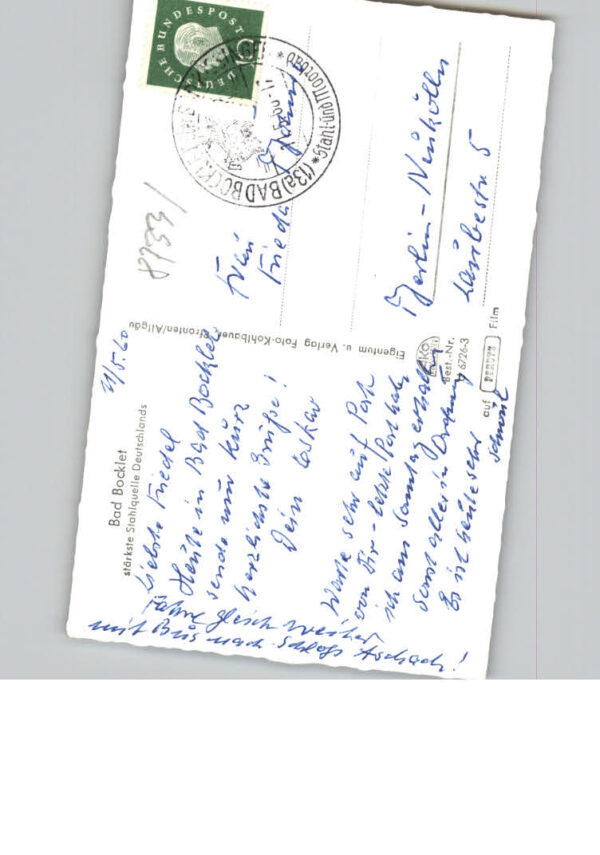 Bad Bocklet
stärkste Stahlquelle Deutschlands
21/5.60
Liebste Friedel
Heute in Bad Bocklet
sende nur kurz
herzlichste Grüße!
Dein Oskar
Warte sehr auf Post
von Dir - letzte Post habe
ich am Samstag erhalten
Sonst alles in Ordnung
Es ist heute sehr
schön!
Fahre gleich weiter
mit Bus nach Schloß Aschach!
Eigentum u. Verlag Foto-Kohlbauer, Pfronten/Allgäu
Best.-Nr.
6726-3
auf PERUTZ Film
DEUTSCHE BUNDESPOST
10
(13a) BAD BOCKLET
* Stahl- und Moorbad *
8/533/
Frau
Frieda
Berlin-Neukölln
Laubestr 5